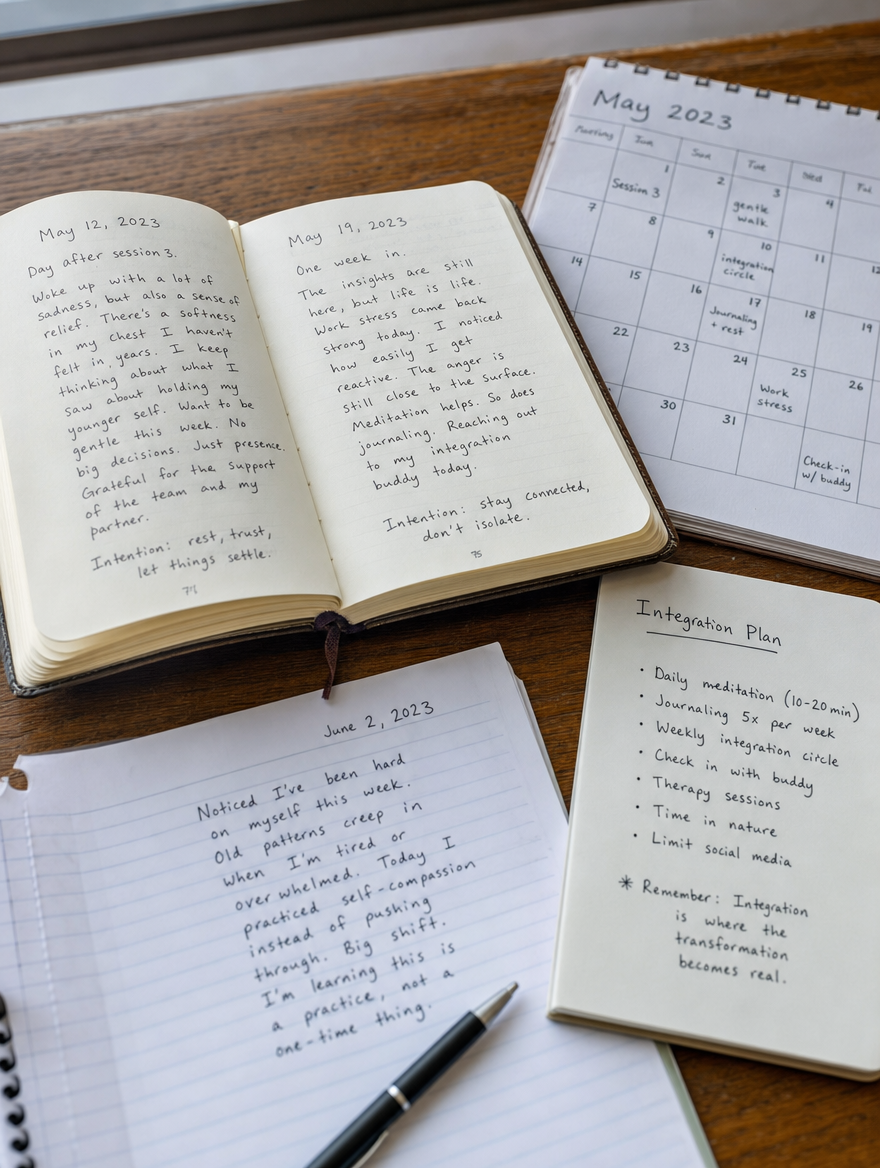 May 12, 2023
Day after session 3.
Woke up with a lot of
sadness, but also a sense of
relief. There's a softness
in my chest I haven't
felt in years. I keep
thinking about what I
saw about holding my
younger self. Want to be
gentle this week. No
big decisions. Just presence.
Grateful for the support
of the team and my
partner.
Intention: rest, trust,
let things settle.
May 19, 2023
One week in.
The insights are still
here, but life is life.
Work stress came back
strong today. I noticed
how easily I get
reactive. The anger is
still close to the surface.
Meditation helps. So does
journaling. Reaching out
to my integration
buddy today.
Intention: stay connected,
don't isolate.
75
May 2023
Sun
Tue
Wed
1
2
3
4
Session 3
gentle
walk
7
8
9
10
11
12
integration
circle
14
15
16
17
18
19
Journaling
+ rest
22
23
24
25
26
Work
stress
30
31
Check-in
w/ buddy
Integration Plan
• Daily meditation (10-20 min)
• Journaling 5x per week
• Weekly integration circle
• Check in with buddy
• Therapy sessions
• Time in nature
• Limit social media
* Remember: Integration
is where the
transformation
becomes real.
June 2, 2023
Noticed I've been hard
on myself this week.
Old patterns creep in
when I'm tired or
overwhelmed. Today I
practiced self-compassion
instead of pushing
through. Big shift.
I'm learning this is
a practice, not a
one-time thing.